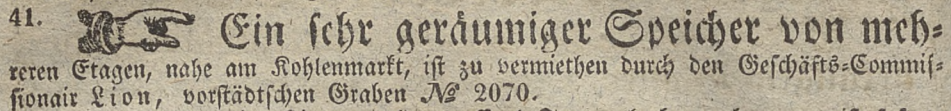 41. ☞ Ein sehr geräumiger Speicher von meh⸗
reren Etagen, nahe am Kohlenmarkt, ist zu vermiethen durch den Geschäfts⸗Commis⸗
sionair Lion, vorstädtschen Graben № 2070.